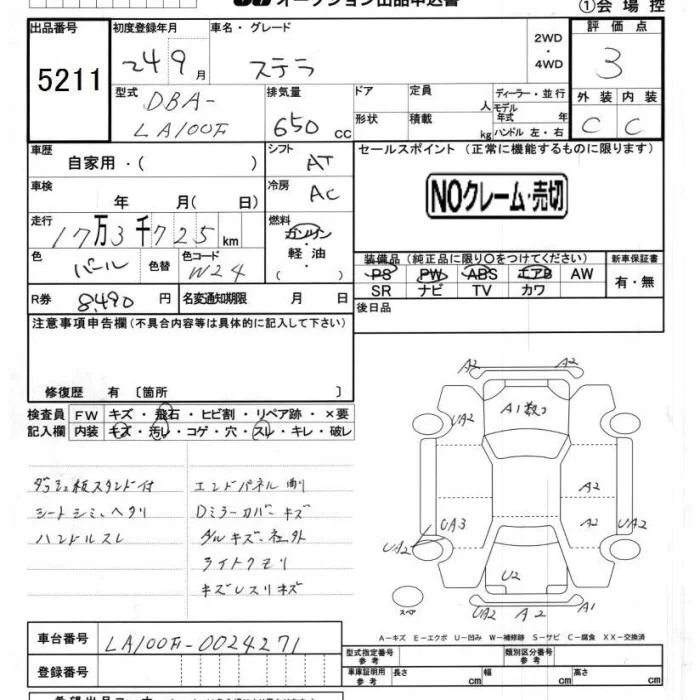 オークション出品申込書
①会場控
出品番号 初度登録年月 車名・グレード 2WD・4WD 評価点
5211 24 9月 ステラ 3
型式 DBA-LA100F 排気量 650 cc ドア 定員 人 ディーラー・並行
形状 積載 kg モデル年式 年 ハンドル 左・右
外装 内装
C C
車歴 自家用・( ) シフト AT セールスポイント (正常に機能するものに限ります)
車検 年 月( 日) 冷房 AC
NOクレーム・売切
走行 17万3千725km 燃料 ガソリン 軽油 ( )
色 パール 色替 色コード W24
装備品(純正品に限り○をつけてください) 新車保証書
PS PW ABS エアB AW 有・無
SR ナビ TV カワ
R券 8,490円 名変通知期限 月 日
後日品
注意事項申告欄(不具合内容等は具体的に記入して下さい)
修復歴 有〔箇所 〕
検査員記入欄 FW キズ・飛石・ヒビ割・リペア跡・×要
内装 キズ・汚レ・コゲ・穴・スレ・キレ・破レ
スタンド付
シートシミ、ヘタリ
ハンドルスレ
エンドパネル
Dミラーカバーキズ
ライトクモリ
A2 A2
UA2 A1
A2
UA3 A2 UA2
UA2
U2
スペア UA2 A2 A1
A-キズ E-エクボ U-凹み W-補修跡 S-サビ C-腐食 XX-交換済
車台番号 LA100F-0024271
登録番号
型式指定番号 参考 類別区分番号 参考
車庫証明用 参考 長さ cm 幅 cm 高さ cm